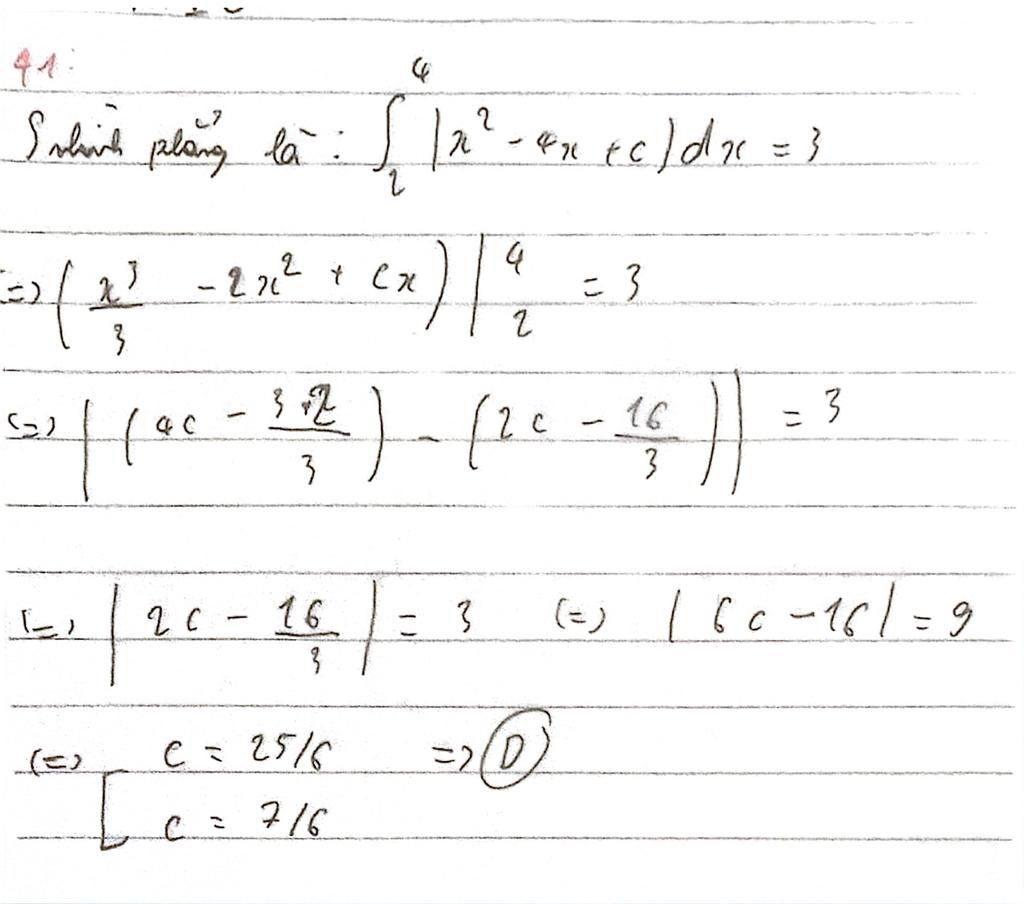 41:
S hình phẳng là: ∫₂⁴ |x² - 4x + c| dx = 3
=> (x³/3 - 2x² + cx) |₂⁴ = 3
<=> |(4c - 32/3) - (2c - 16/3)| = 3
<=> |2c - 16/3| = 3 <=> |6c - 16| = 9
<=> [ c = 25/6 => D
c = 7/6